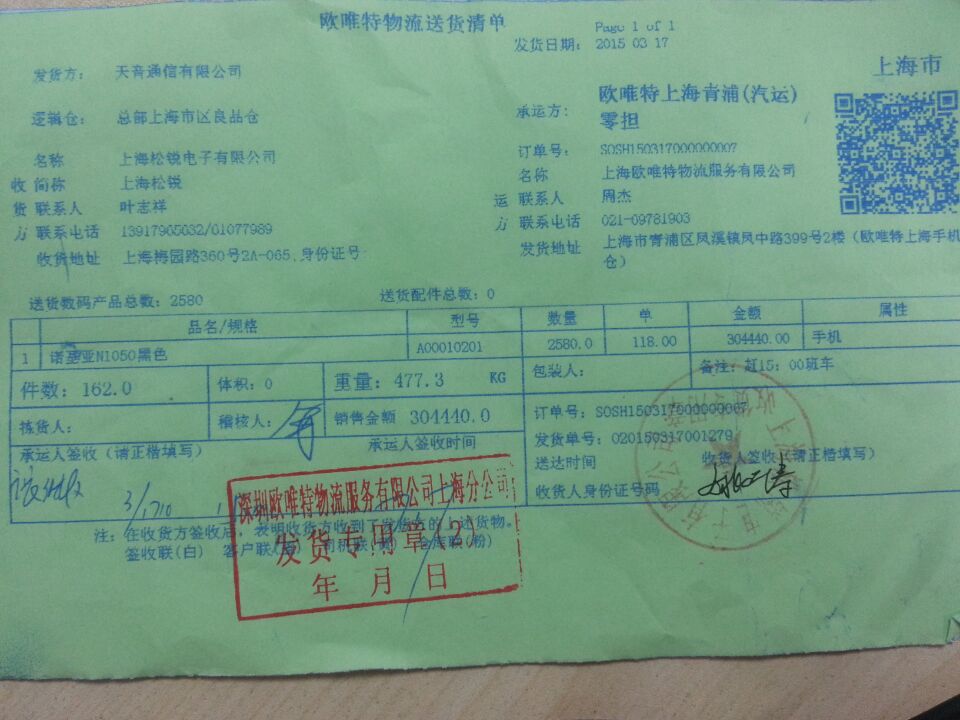 欧唯特物流送货清单
Page 1 of 1
发货日期: 2015 03 17
上海市
发货方: 天音通信有限公司
逻辑仓: 总部上海市区良品仓
承运方: 欧唯特上海青浦(汽运)
零担
订单号: SOSH150317000000007
名称 上海松锐电子有限公司
名称 上海欧唯特物流服务有限公司
收 简称 上海松锐
货 联系人 叶志祥
运 联系人 周杰
方 联系电话 13917965032/61077989
方 联系电话 021-69781903
收货地址 上海梅园路360号2A-065,身份证号:
发货地址 上海市青浦区凤溪镇凤中路399号2楼（欧唯特上海手机
仓）
送货数码产品总数: 2580
送货配件总数: 0
品名/规格 型号 数量 单 金额 属性
1 诺基亚N1050黑色 A00010201 2580.0 118.00 304440.00 手机
件数: 162.0 体积: 0 重量: 477.3 KG 包装人: 备注: 赶15: 00班车
拣货人: 稽核人: 销售金额 304440.0 订单号: SOSH150317000000007
承运人签收（请正楷填写） 承运人签收时间 发货单号: 020150317001279
送达时间 收货人签收（请正楷填写）
收货人身份证号码
深圳欧唯特物流服务有限公司上海分公司
发货专用章(2)
年 月 日
注: 在收货方签收后, 表明收货方收到了发货方的上述货物。
签收联(白) 客户联 司机联 仓库联(粉)